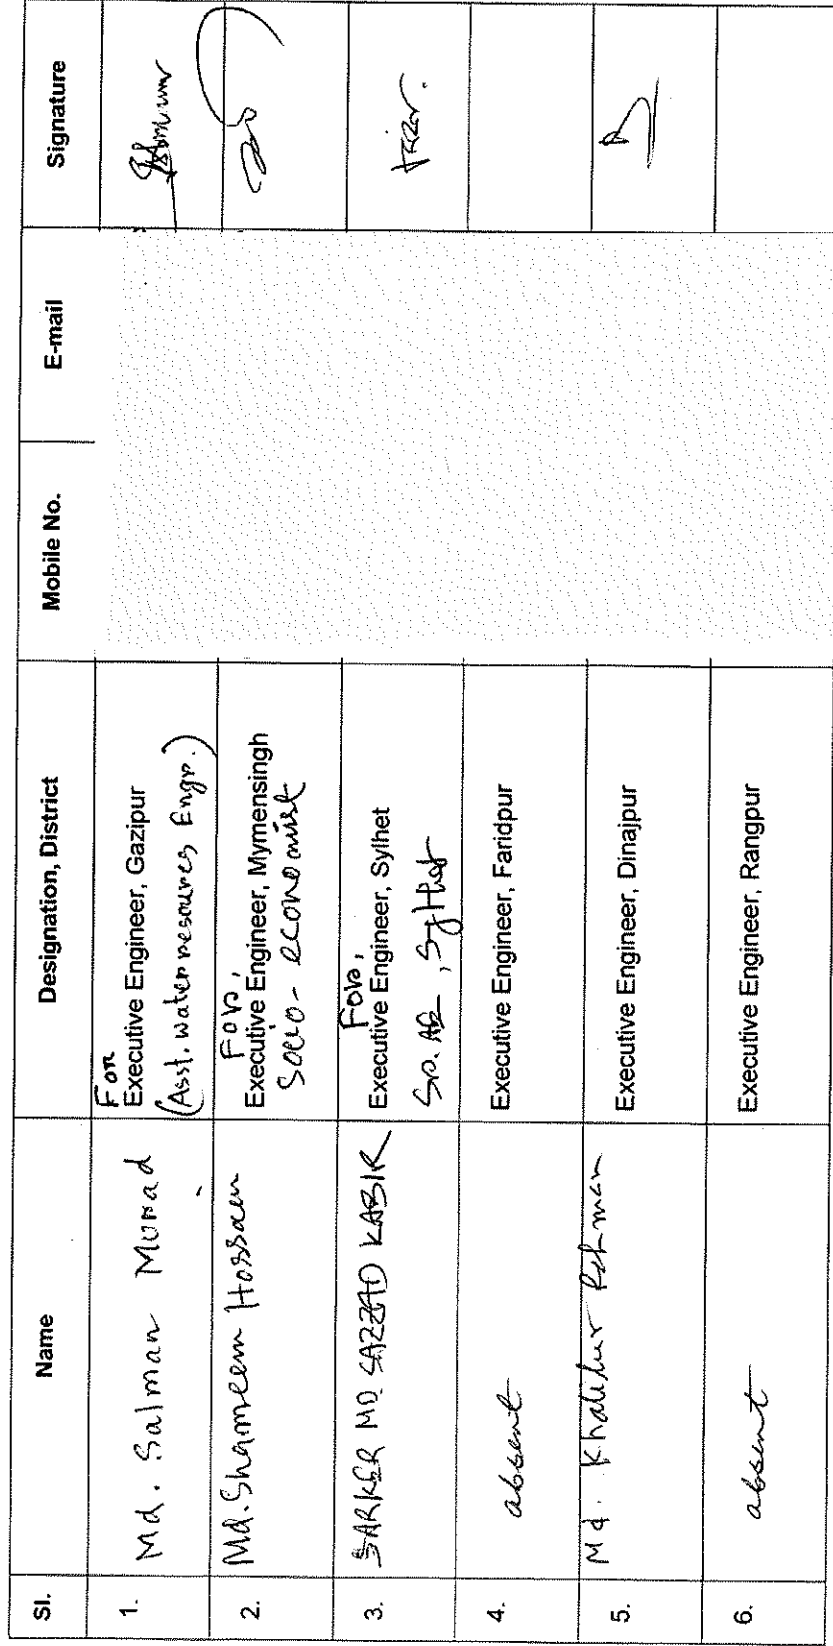 Sl. Name Designation, District Mobile No. E-mail Signature
1. Md. Salman Murad For
Executive Engineer, Gazipur
(Asst. water resources Engr.)
2. Md. Shameem Hossaen For,
Executive Engineer, Mymensingh
Socio-economist
3. SARKER MD. SAZZAD KABIR For,
Executive Engineer, Sylhet
Sr. AE, Sylhet
4. absent Executive Engineer, Faridpur
5. Md. Khalilur Rahman Executive Engineer, Dinajpur
6. absent Executive Engineer, Rangpur